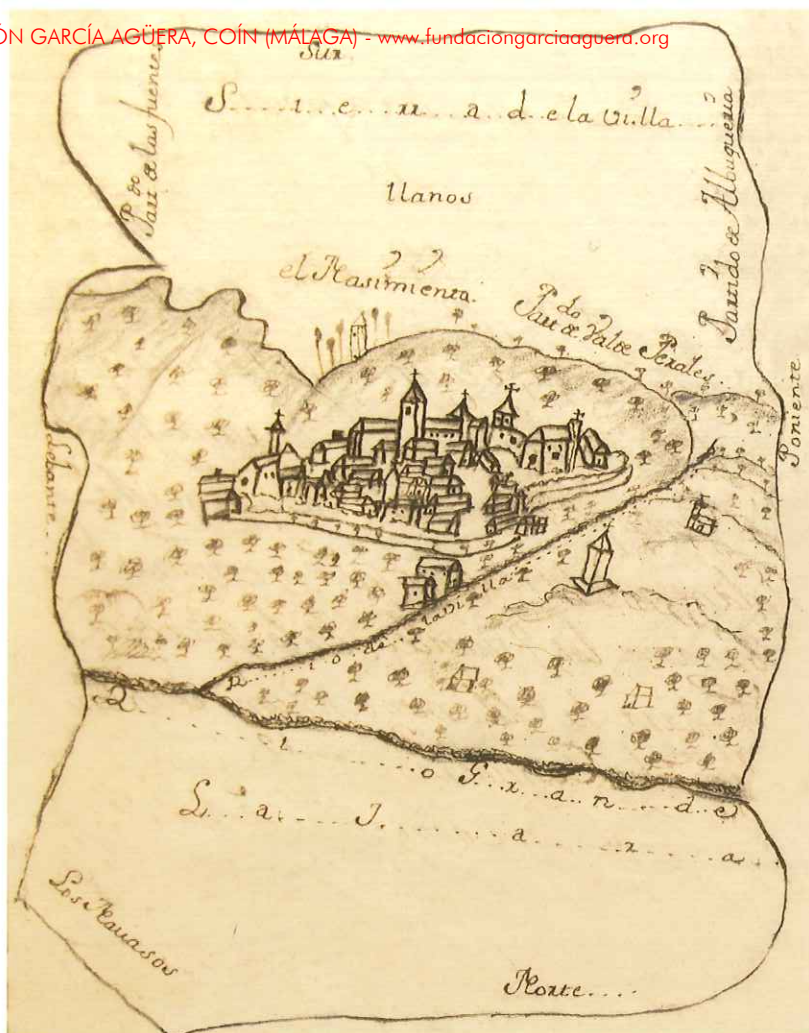 ÓN GARCÍA AGÜERA, COÍN (MÁLAGA) - www.fundaciongarciaaguera.org
Sur
S....i...e...rr...a..d..e la Villa....
Part.do de las fuentes
llanos
Partido de Albuqueria
el Nasimiento.
Part.do de Valde Perales.
Poniente
Lebante...
R.....i o..de..la Villa
R.......i........o G..r..a..n..d..e
L...a....J......a.....r.....a...
Los Nauasos
Norte....